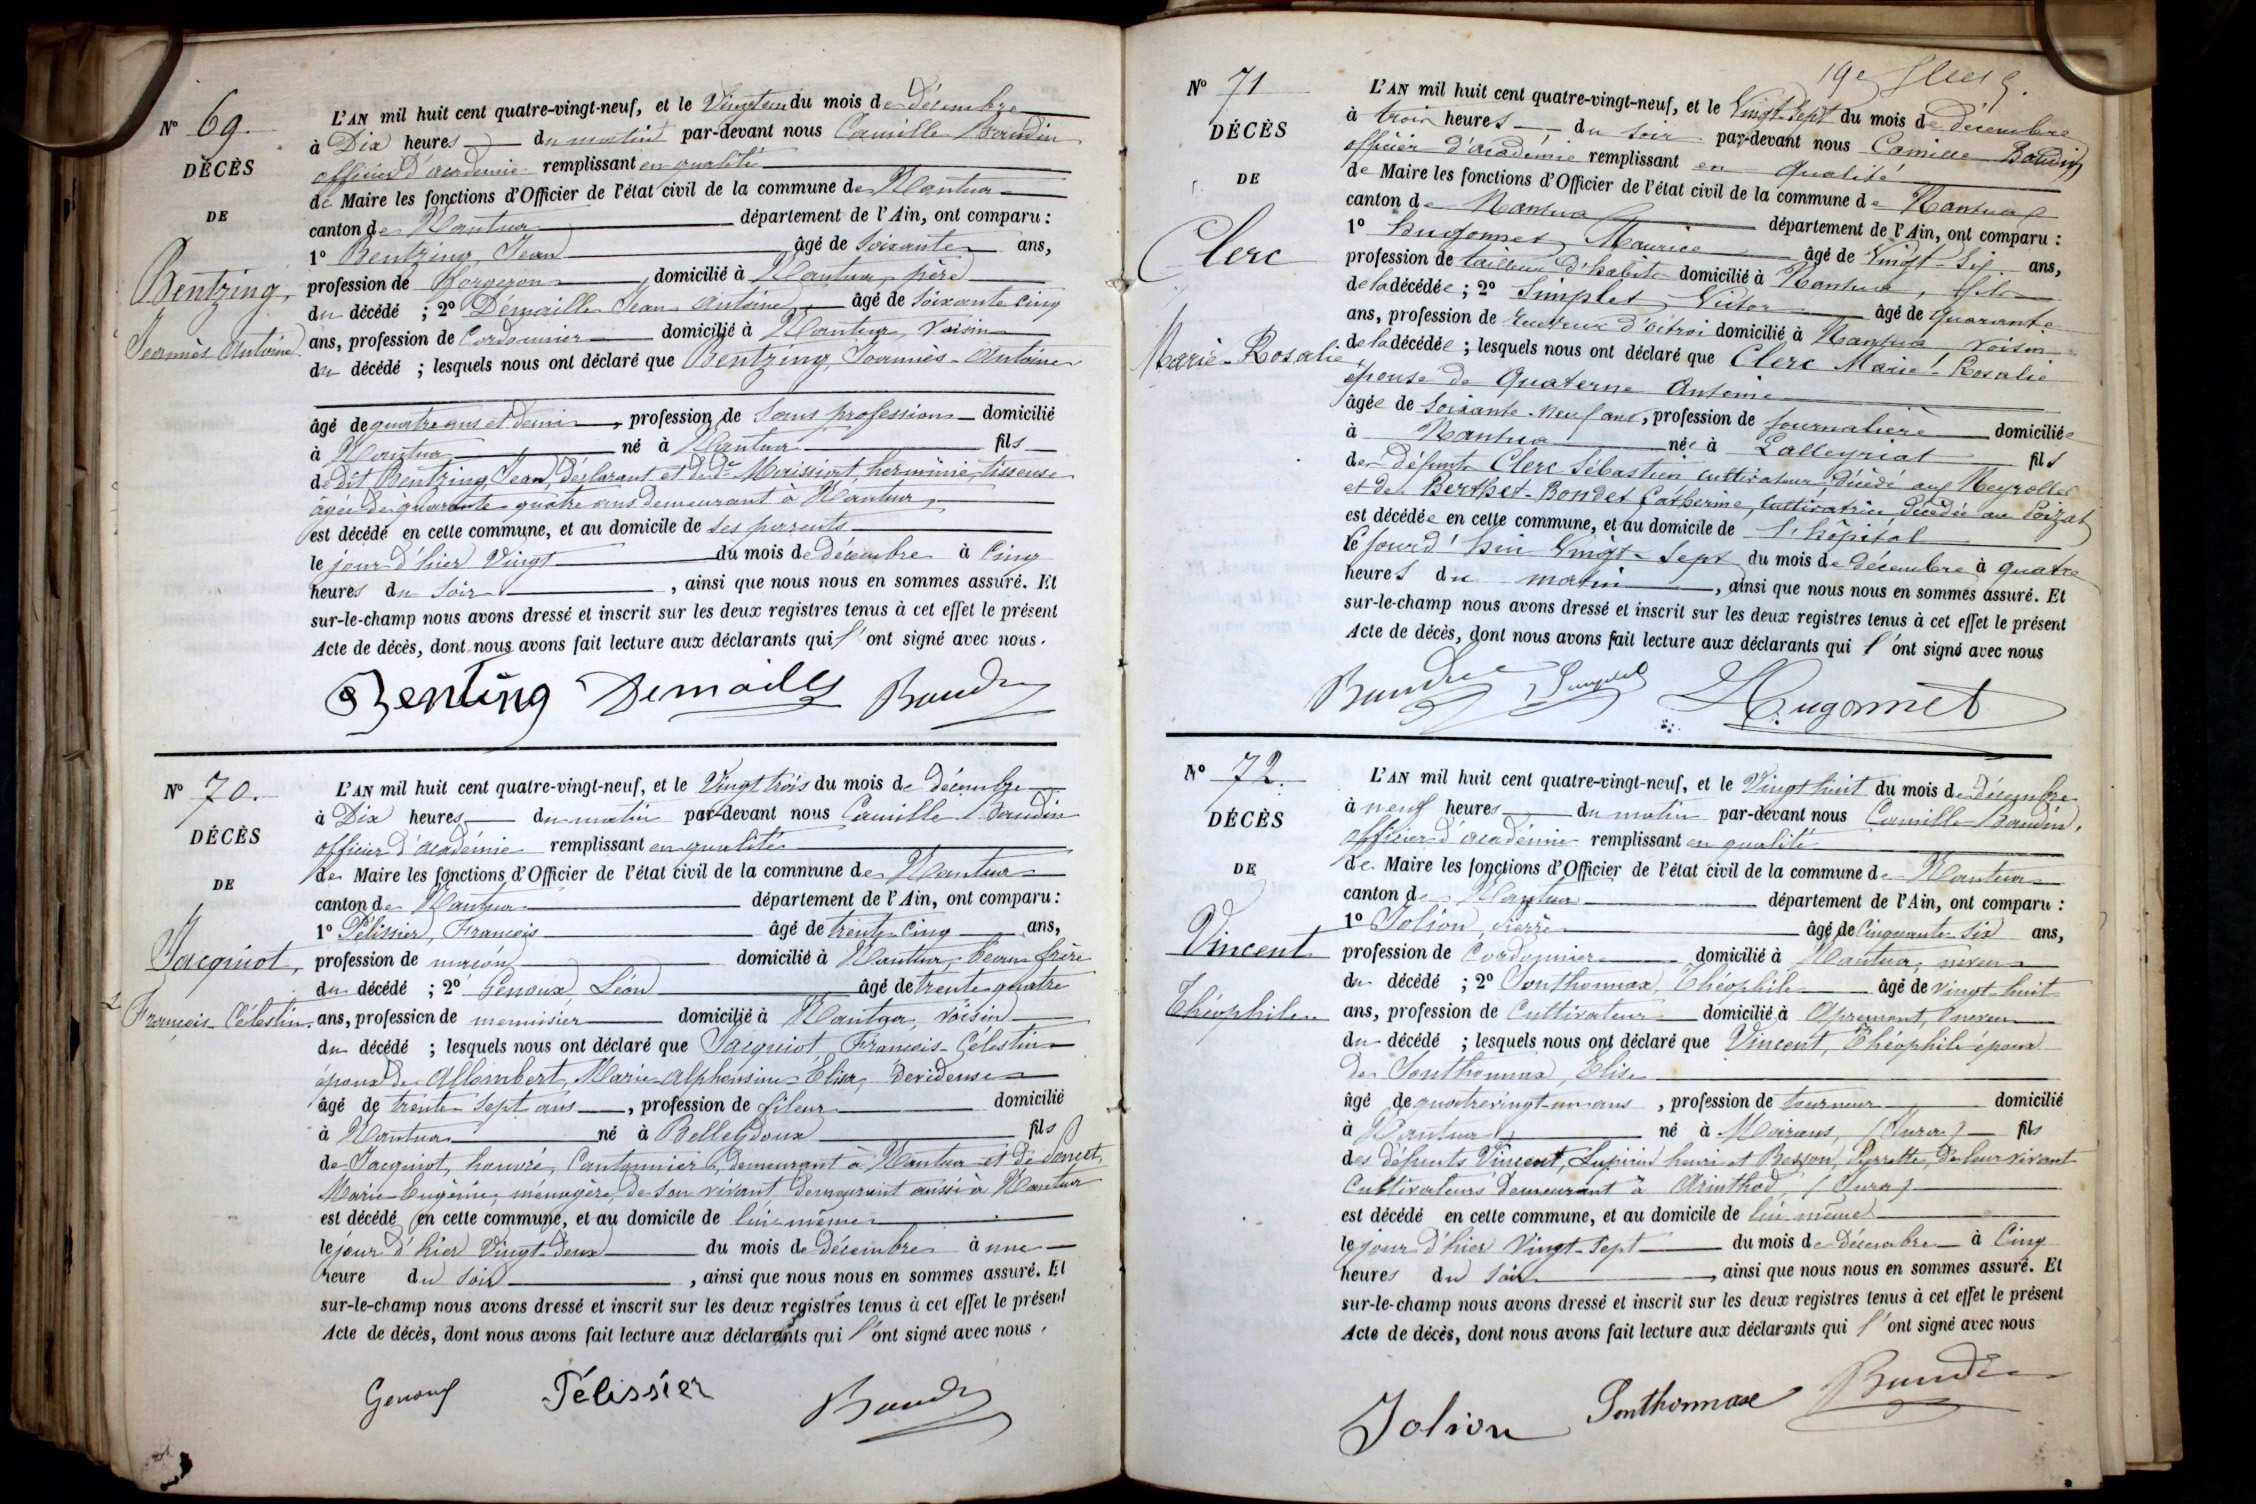 Nº 69.
DÉCÈS
DE
Bentzing,
Joanniès Antoine
L'AN mil huit cent quatre-vingt-neuf, et le Vingt un du mois de décembre
à Dix heures du matin par-devant nous Camille Baudin
officier d'académie remplissant en qualité
de Maire les fonctions d'Officier de l'état civil de la commune de Nantua
canton de Nantua département de l'Ain, ont comparu :
1º Bentzing, Jean âgé de Soixante ans,
profession de Forgeron domicilié à Nantua, père
du décédé ; 2º Démaille Jean Antoine âgé de Soixante cinq
ans, profession de Cordonnier domicilié à Nantua, voisin
du décédé ; lesquels nous ont déclaré que Bentzing, Joanniès-Antoine
âgé de quatre ans et demi, profession de Sans profession domicilié
à Nantua né à Nantua fils
de dit Bentzing Jean, déclarant et de de Maissiat, herminie, tisseuse
agée de quarante quatre ans demeurant à Nantua,
est décédé en cette commune, et au domicile de ses parents
le jour d'hier Vingt du mois de décembre à Cinq
heures du Soir, ainsi que nous nous en sommes assuré. Et
sur-le-champ nous avons dressé et inscrit sur les deux registres tenus à cet effet le présent
Acte de décès, dont nous avons fait lecture aux déclarants qui l'ont signé avec nous.
Bentzing Demaille Baudin
Nº 70.
DÉCÈS
DE
Jacquiot,
François-Célestin.
L'AN mil huit cent quatre-vingt-neuf, et le Vingt trois du mois de décembre
à Dix heures du matin par-devant nous Camille Baudin
officier d'académie remplissant en qualité
de Maire les fonctions d'Officier de l'état civil de la commune de Nantua
canton de Nantua département de l'Ain, ont comparu :
1º Pélissier, François âgé de trente-cinq ans,
profession de maçon domicilié à Nantua, beau-frère
du décédé ; 2º Genoux Léon âgé de trente quatre
ans, profession de menuisier domicilié à Nantua, voisin
du décédé ; lesquels nous ont déclaré que Jacquiot François-Célestin
époux de Allombert, Marie-Alphonsine-Elisa, devideuse
âgé de trente sept ans, profession de fileur domicilié
à Nantua né à Belleydoux fils
de Jacquiot, honoré, Cantonnier, demeurant à Nantua et de Poncet,
Marie-Eugénie, ménagère, de son vivant demeurant aussi à Nantua
est décédé en cette commune, et au domicile de lui-même
le jour d'hier Vingt-deux du mois de décembre à une
heure du soir, ainsi que nous nous en sommes assuré. Et
sur-le-champ nous avons dressé et inscrit sur les deux registres tenus à cet effet le présent
Acte de décès, dont nous avons fait lecture aux déclarants qui l'ont signé avec nous.
Genoux Pélissier Baudin
19e
Nº 71
DÉCÈS
DE
Clerc
Marie-Rosalie
L'AN mil huit cent quatre-vingt-neuf, et le Vingt-Sept du mois de décembre
à trois heures du soir par-devant nous Camille Baudin
officier d'académie remplissant en qualité
de Maire les fonctions d'Officier de l'état civil de la commune de Nantua
canton de Nantua département de l'Ain, ont comparu :
1º Hugonnet Maurice âgé de Vingt-Six ans,
profession de tailleur d'habits domicilié à Nantua, fils
de la décédée ; 2º Simplet Victor âgé de quarante
ans, profession de receveur d'octroi domicilié à Nantua voisin
de la décédée ; lesquels nous ont déclaré que Clerc Marie-Rosalie
épouse de Quaterne Antoine
âgée de Soixante-neuf ans, profession de journalière domiciliée
à Nantua née à Lalleyriat fils
de Défunts Clerc Sébastien, cultivateur, décédé aux Neyrolles
et de Berthet-Bondet Catherine, cultivatrice décédée au Poizat
est décédée en cette commune, et au domicile de l'hôpital
le jourd'hui Vingt-Sept du mois de décembre à quatre
heures du matin, ainsi que nous nous en sommes assuré. Et
sur-le-champ nous avons dressé et inscrit sur les deux registres tenus à cet effet le présent
Acte de décès, dont nous avons fait lecture aux déclarants qui l'ont signé avec nous
Baudin Simplet Hugonnet
Nº 72.
DÉCÈS
DE
Vincent
Théophile
L'AN mil huit cent quatre-vingt-neuf, et le Vingt huit du mois de décembre
à neuf heures du matin par-devant nous Camille Baudin,
officier d'académie remplissant en qualité
de Maire les fonctions d'Officier de l'état civil de la commune de Nantua
canton de Nantua département de l'Ain, ont comparu :
1º Jolion, Pierre âgé de Cinquante Six ans,
profession de Cordonnier domicilié à Nantua, neveu
du décédé ; 2º Sonthonnax, Théophile âgé de vingt-huit
ans, profession de Cultivateur domicilié à Apremont, neveu
du décédé ; lesquels nous ont déclaré que Vincent, Théophile époux
de Sonthonnax, Elise
âgé de quatrevingt-un ans, profession de tourneur domicilié
à Nantua né à Moirans, (Jura) fils
des défunts Vincent, Lupicin henri et Besson, Pierrette, de leur vivant
Cultivateurs demeurant à Arinthod, (Jura)
est décédé en cette commune, et au domicile de lui-même
le jour d'hier Vingt-Sept du mois de décembre à Cinq
heures du soir, ainsi que nous nous en sommes assuré. Et
sur-le-champ nous avons dressé et inscrit sur les deux registres tenus à cet effet le présent
Acte de décès, dont nous avons fait lecture aux déclarants qui l'ont signé avec nous
Jolion Sonthonnax Baudin